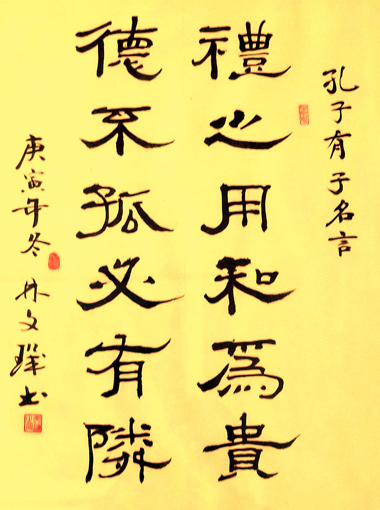 孔子有子名言
禮之用和爲貴
德不孤必有隣
庚寅年冬 林文書